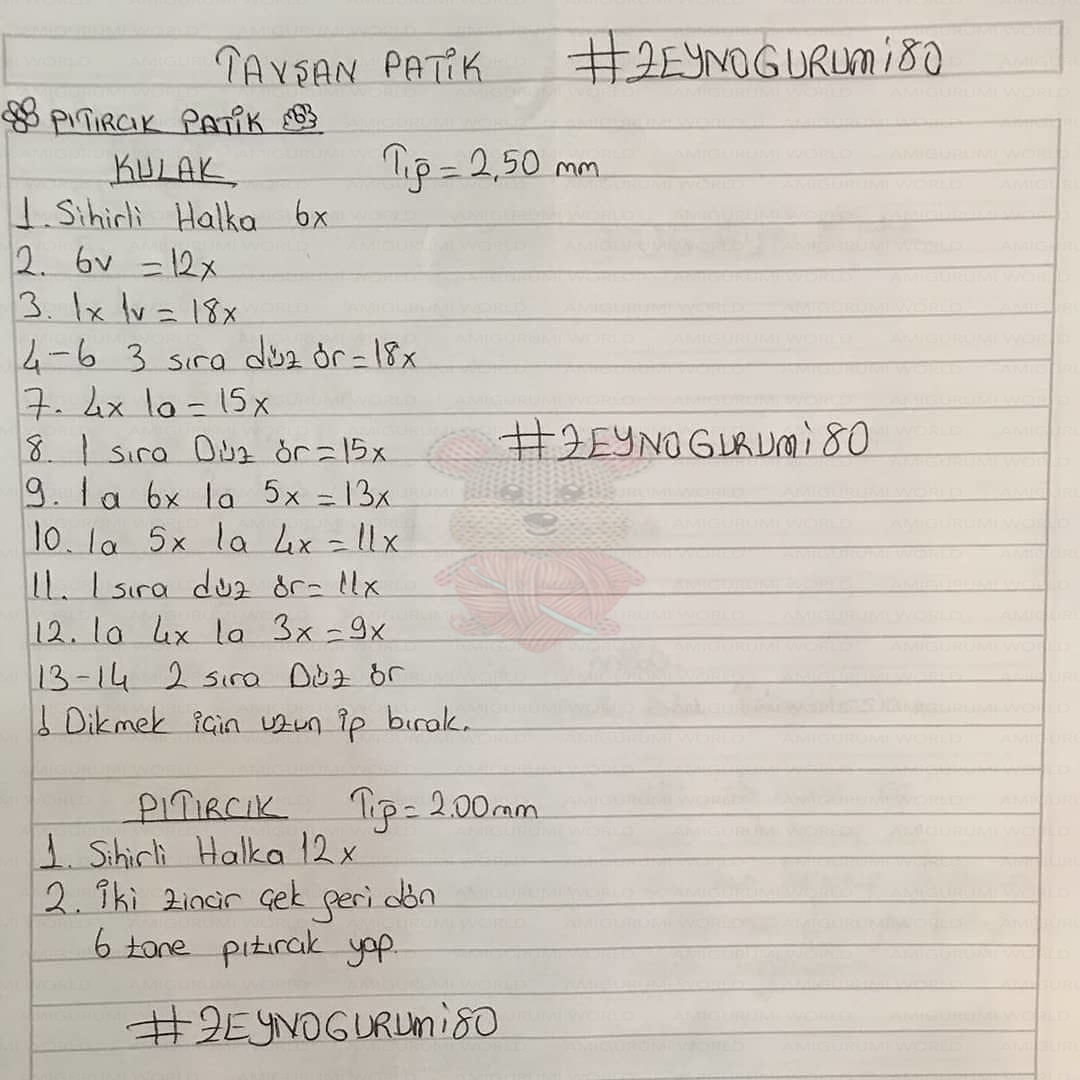 TAVŞAN PATİK #ZEYNOGURUMİ80
PITIRCIK PATİK
KULAK Tığ = 2,50 mm
1. Sihirli Halka 6x
2. 6v = 12x
3. 1x 1v = 18x
4-6 3 sıra düz ör = 18x
7. 4x 1a = 15x
8. 1 sıra Düz ör = 15x #ZEYNOGURUMİ80
9. 1a 6x 1a 5x = 13x
10. 1a 5x 1a 4x = 11x
11. 1 sıra düz ör = 11x
12. 1a 4x 1a 3x = 9x
13-14 2 sıra Düz ör
! Dikmek için uzun ip bırak.
PITIRCIK Tığ = 2.00 mm
1. Sihirli Halka 12x
2. İki zincir çek geri dön
6 tane pıtırak yap.
#ZEYNOGURUMİ80
AMIGURUMI WORLD